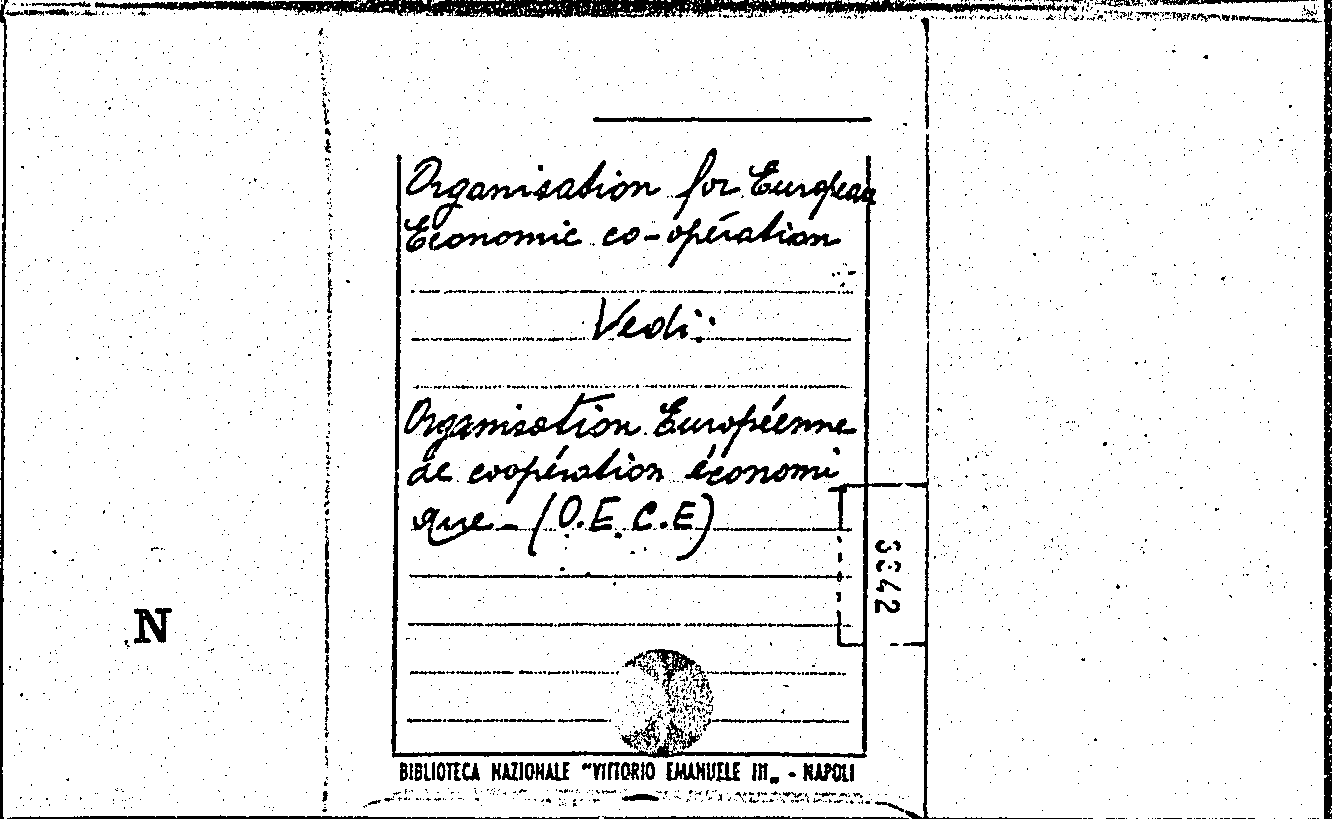 Organisation for European
Economic co-opération
Vedi:
Organisation Européenne
de coopération économi
que - (O.E.C.E)
N
BIBLIOTECA NAZIONALE "VITTORIO EMANUELE III„ - NAPOLI